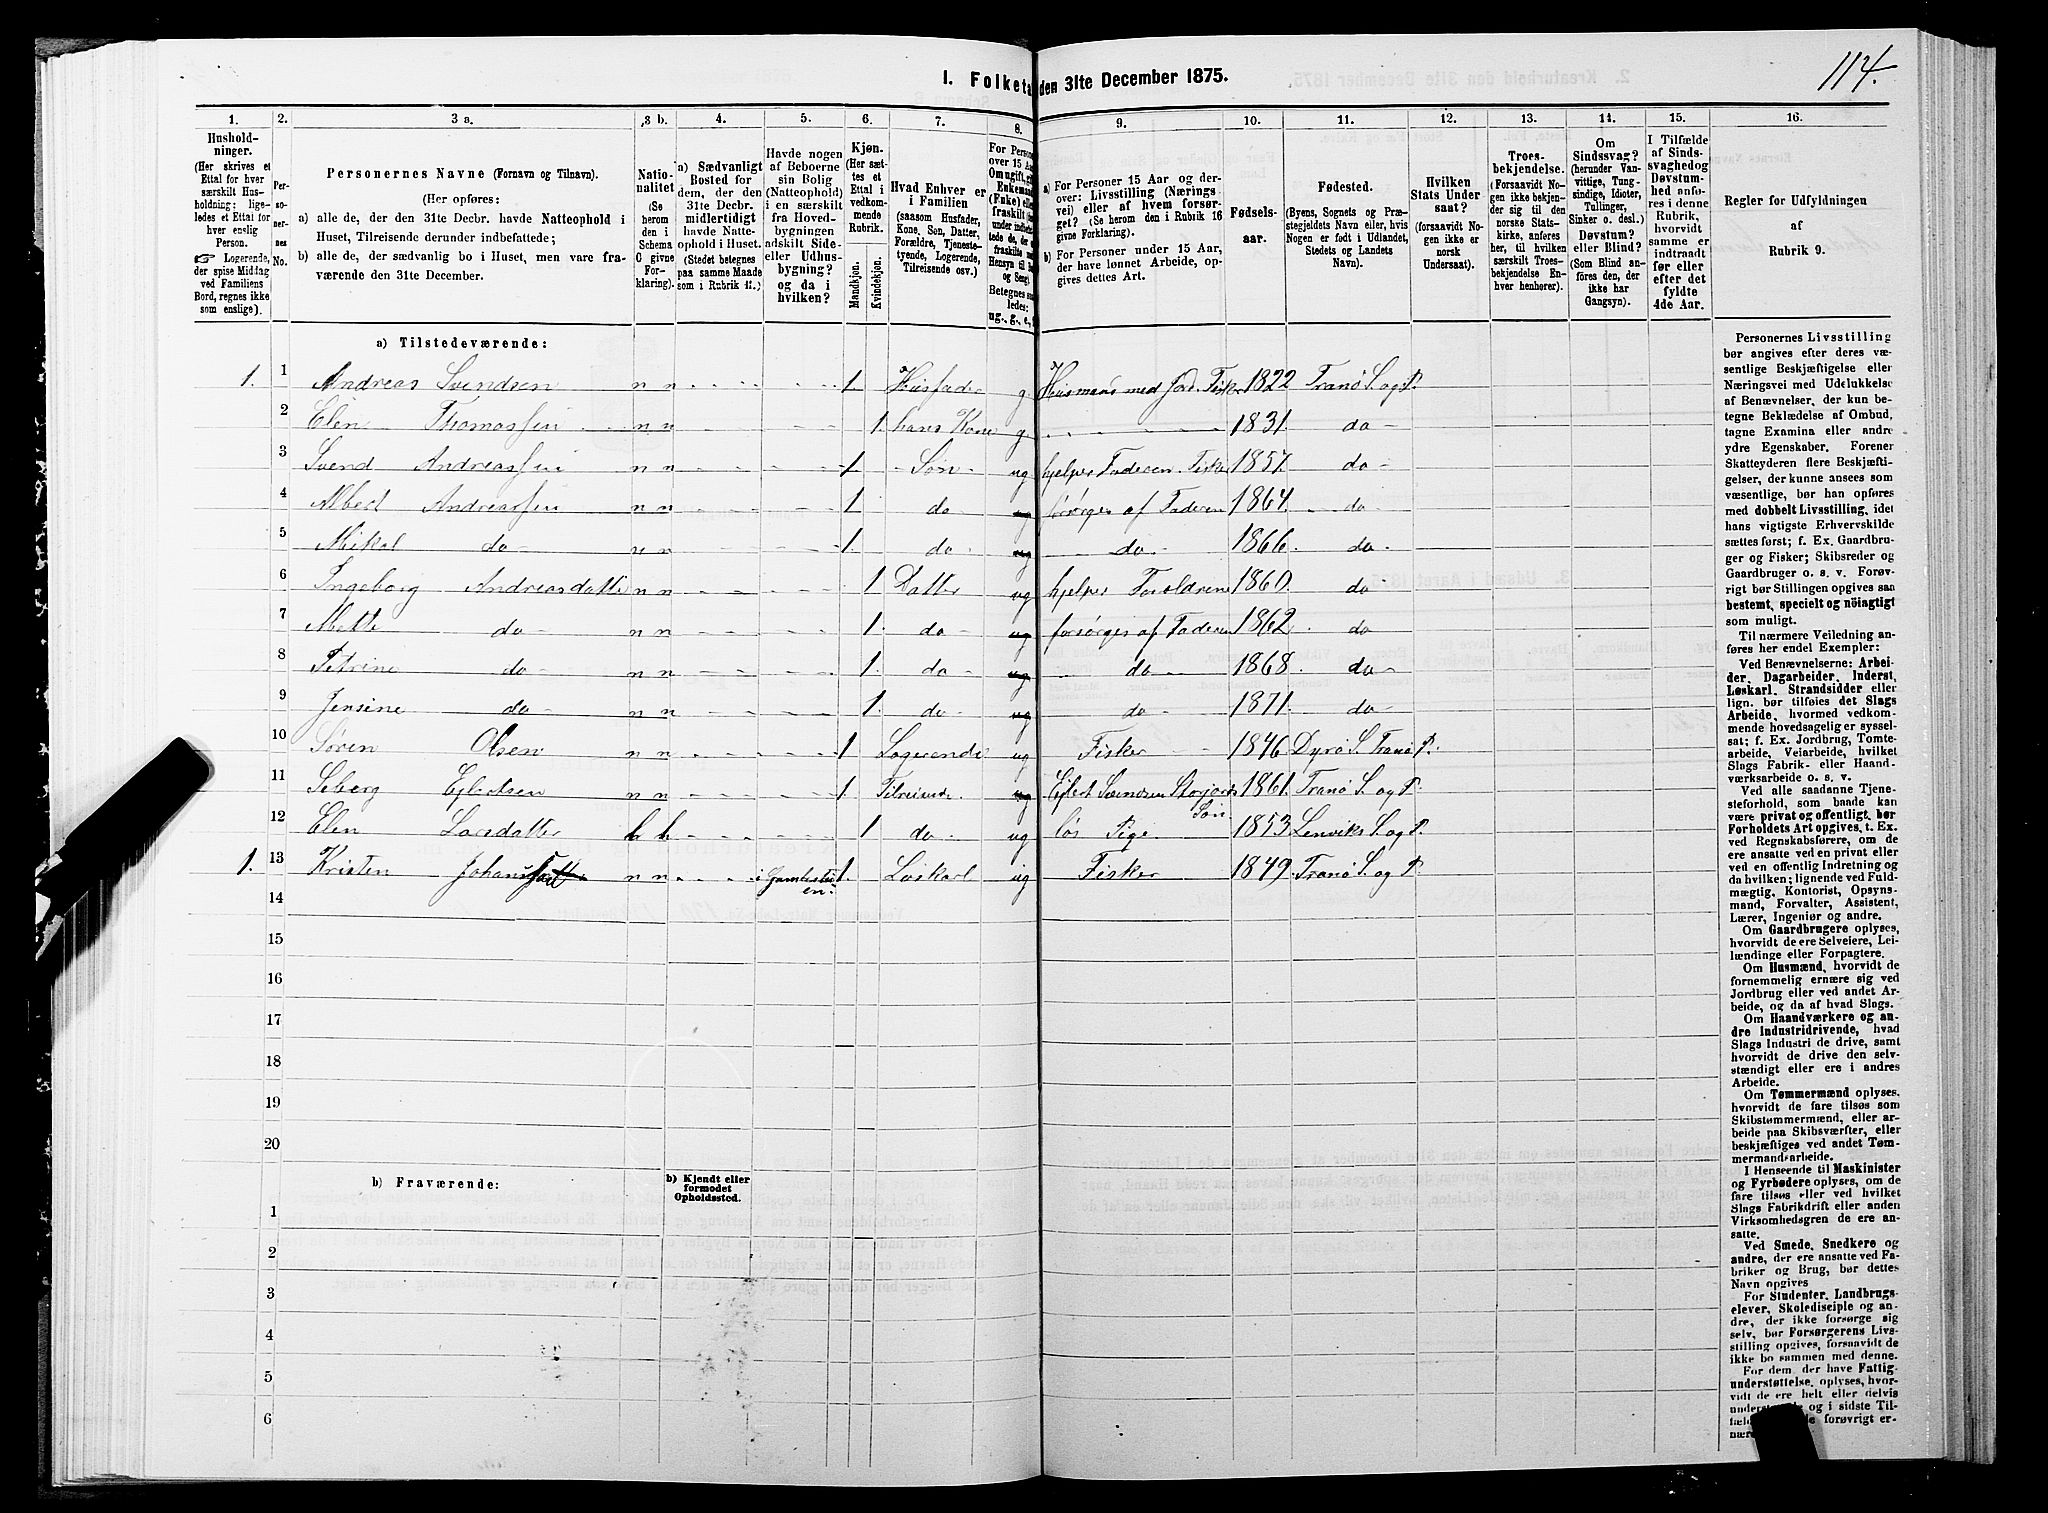 114.
I. Folketa den 31te December 1875.
1. 2. 3 a. 3 b. 4. 5. 6. 7. 8. 9. 10. 11. 12. 13. 14. 15. 16.
Hushold-
ninger.
(Her skrives et
Ettal for hver
særskilt Hus-
holdning: lige-
ledes et Ettal for
hver enslig
Person.
☞ Logerende,
der spise Middag
ved Familiens
Bord, regnes ikke
som enslige).
Per-
so-
ner-
nes
No.
Personernes Navne (Fornavn og Tilnavn).
(Her opføres:
a) alle de, der den 31te Decbr. havde Natteophold i
Huset, Tilreisende derunder indbefattede;
b) alle de, der sædvanlig bo i Huset, men vare fra-
værende den 31te December.
Natio-
nalitet
(Se
herom
den i
Schema
C givne
For-
klaring).
a) Sædvanligt
Bosted for
dem, der den
31te Decbr.
midlertidigt
havde Natte-
ophold i Huset.
(Stedet betegnes
paa samme Maade
som i Rubrik 11.)
Havde nogen
af Beboerne
sin Bolig
(Natteophold)
i en særskilt
fra Hoved-
bygningen
adskilt Side-
eller Udhus-
bygning?
og da i
hvilken?
Kjøn.
(Her sæt-
tes et
Ettal i
vedkom-
mende
Rubrik.
Mandkjøn.
Kvindekjøn.
Hvad Enhver er
i Familien
(saasom Husfader,
Kone, Søn, Datter,
Forældre, Tjeneste-
tyende, Logerende,
Tilreisende osv.)
For Person
over 15 Aar
a) For Personer 15 Aar og der-
over: Livsstilling (Nærings-
vei) eller af hvem forsør-
get? (Se herom den i Rubrik 16
givne Forklaring).
b) For Personer under 15 Aar,
der have lønnet Arbeide, op-
gives dettes Art.
Fødsels-
aar.
Fødested.
(Byens, Sognets og Præ-
stegjeldets Navn eller, hvis
Nogen er født i Udlandet,
Stedets og Landets
Navn).
Hvilken
Stats Under
saat?
(forsaavidt No-
gen ikke er
norsk
Undersaat).
Troes-
bekjendelse.
(Forsaavidt No-
gen ikke bekjen-
der sig til den
norske Stats-
kirke, anføres
her, til hvilken
særskilt Troes-
bekjendelse En-
hver henhører).
Om
Sindssvag?
(herunder Van-
vittige, Tung-
sindige, Idioter,
Tullinger,
Sinker o. desl.)
Døvstum?
eller Blind?
(Som Blind an-
føres den, der
ikke har
Gangsyn).
I Tilfælde
af Sinds-
svaghed og
Døvstum-
hed anfø-
res i denne
Rubrik,
hvorvidt
samme er
indtraadt
før eller
efter det
fyldte
4de Aar.
Regler for Udfyldningen
af
Rubrik 9.
a) Tilstedeværende:
1. 1 Andreas Svendsen n n 1. Husfader g Husmand med Jord. Fisker 1822 Tranø S. og P.
2 Elen Thomassen n n 1. hans Kone g 1831. do
3 Svend Andreassen n n 1 Søn ug hjelper Faderen. Fisker 1857. do
4 Albert Andreassen n n 1 do ug forsørges af Faderen 1864. do
5 Mikal do n n 1. do ug do 1866. do
6 Ingeborg Andreasdatter n n 1 Datter ug hjelper Foreldrene 1860. do
7 Mette do n n 1. do ug forsørges af Faderen 1862 do
8 Petrine do n n 1. do ug do 1868. do
9 Jensine do n n 1. do ug do 1871. do
10 Søren Olsen n n 1 Logerende ug Fisker 1846 Dyrø S. Tranø P.
11 Seberg Ejlertsen n n 1. Tilreisende ug Ejlert Svendsen Storjord 1861. Tranø S. og P.
Søn
12 Elen Larsdatter h h 1 do ug løs Pige 1853 Lenviks S. og P.
1. 13 Kristen Johans n n i Gambestuen 1. Løskarl ug Fisker 1849. Tranø S. og P.
14
15
16
17
18
19
20
b) Fraværende:
b) Kjendt eller
formodet
Opholdssted.
1
2
3
4
5
6
Personernes Livsstilling
bør angives efter deres væ-
sentlige Beskjæftigelse eller
Næringsvei med Udelukkelse
af Benævnelser, der kun be-
tegne Beklædelse af Ombud,
tagne Examina eller andre
ydre Egenskaber. Forener
Skatteyderen flere Beskjæfti-
gelser, der kunne ansees som
væsentlige, bør han opføres
med dobbelt Livsstilling, idet
hans vigtigste Erhvervskilde
sættes først; f. Ex. Gaardbru-
ger og Fisker; Skibsreder og
Gaardbruger o. s. v. Forøv-
rigt bør Stillingen opgives saa
bestemt, specielt og nöiagtigt
som muligt.
Til nærmere Veiledning an-
føres her endel Exempler:
Ved Benævnelserne: Arbei-
der, Dagarbeider, Inderst,
Løskarl, Strandsidder eller
lign. bør tilføies det Slags
Arbeide, hvormed vedkom-
mende hovedsagelig er syssel-
sat; f. Ex. Jordbrug, Tomte-
arbeide, Veiarbeide, hvilket
Slags Fabrik- eller Haand-
værksarbeide o. s. v.
Ved alle saadanne Tjene-
steforhold, som baade kan
være privat og offentlig, bør
Forholdets Art opgives, t. Ex.
ved Regnskabsførere, om de
ere ansatte ved en privat eller
ved en offentlig Indretning og
da hvilken; lignende ved Fuld-
mægtig, Kontorist, Opsyns-
mand, Forvalter, Assistent,
Lærer, Ingeniør og andre.
Om Gaardbrugere oplyses,
hvorvidt de ere Selveiere, Lei-
lændinge eller Forpagtere.
Om Husmænd, hvorvidt de
fornemmelig ernære sig ved
Jordbrug eller ved andet Ar-
beide, og da af hvad Slags.
Om Haandværkere og an-
dre Industridrivende, hvad
Slags Industri de drive, samt
hvorvidt de drive den selv-
stændigt eller ere i andres
Arbeide.
Om Tømmermænd oplyses,
hvorvidt de fare tilsøs som
Skibstømmermænd, eller ar-
beide paa Skibsværfter, eller
beskjæftiges ved andet Tøm-
mermandsarbeide.
I Henseende til Maskinister
og Fyrbødere oplyses, om de
fare tilsøs eller ved hvilket
Slags Fabrikdrift eller anden
Virksomhedsgren de ere an-
satte.
Ved Smede, Snedkere og
andre, der ere ansatte ved Fa-
briker og Brug, bør dettes
Navn opgives
For Studenter, Landbrugs-
elever, Skoledisciple og an-
dre, der ikke forsørge sig
selv, bør Forsørgerens Livs-
stilling opgives, forsaavidt de
ikke bo sammen med denne.
For dem, der have Fattig-
understøttelse, oplyses, hvor-
vidt de ere helt eller delvis
og i sidste Til-
forøvrigt er-